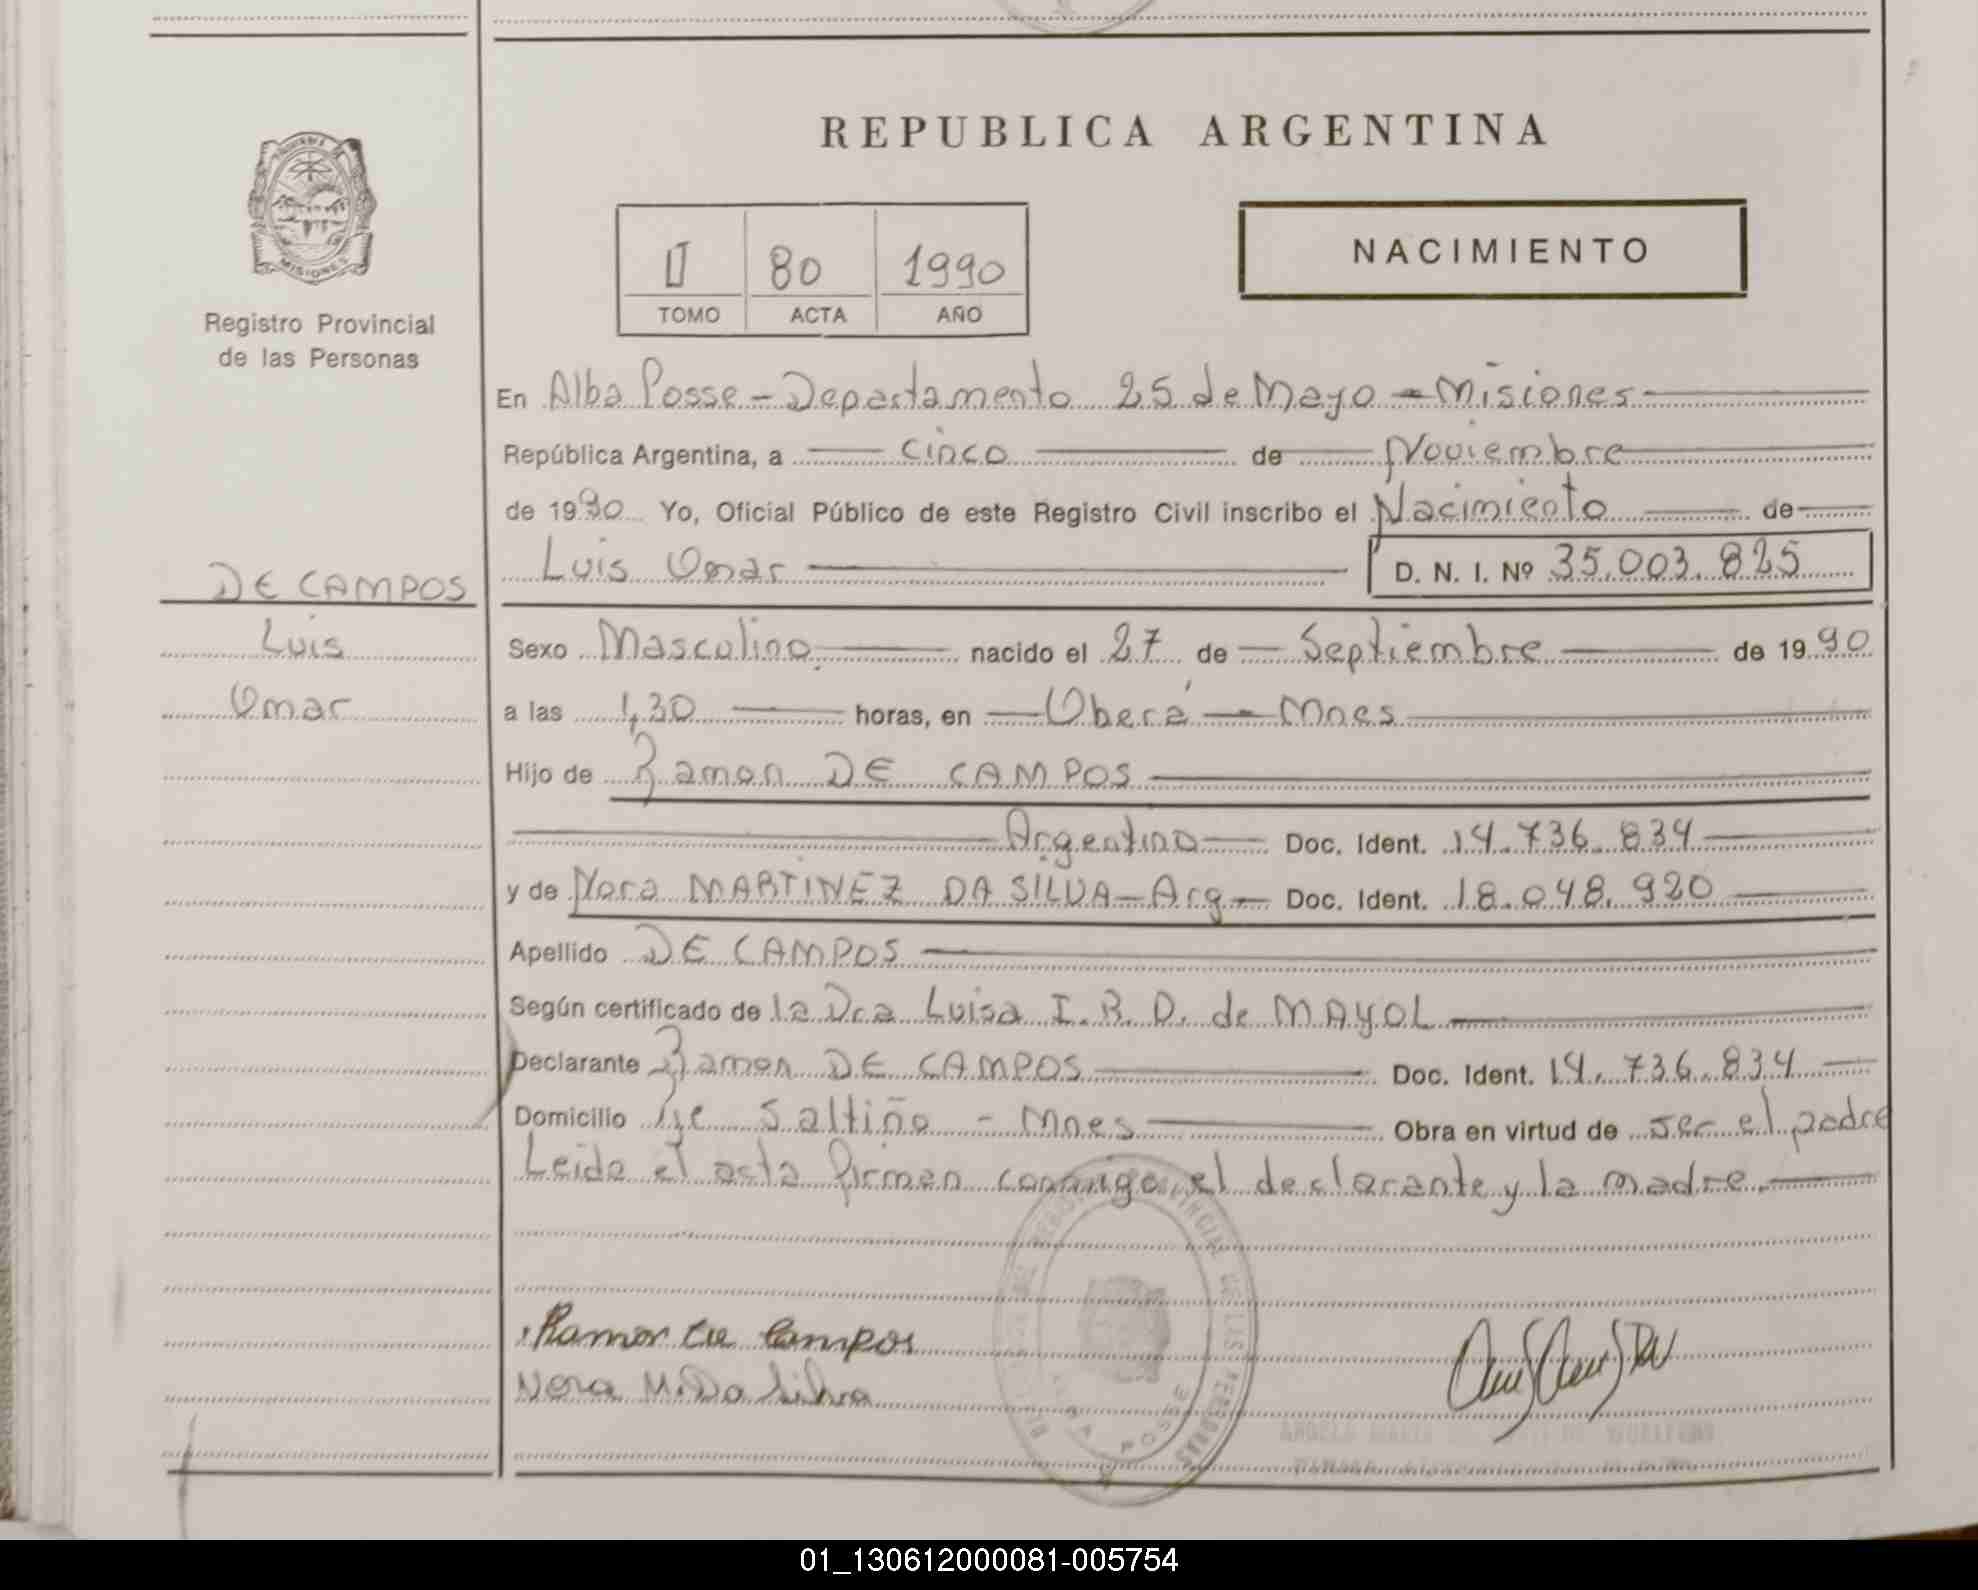 REPUBLICA ARGENTINA
MISIONES
Registro Provincial
de las Personas
II 80 1990
TOMO ACTA AÑO
NACIMIENTO
En Alba Posse - Departamento 25 de Mayo - Misiones
República Argentina, a cinco de Noviembre
de 1990 Yo, Oficial Público de este Registro Civil inscribo el Nacimiento de
Luis Omar D. N. I. Nº 35.003.825
DE CAMPOS
Luis
Omar
Sexo Masculino. nacido el 27 de Septiembre de 1990
a las 1,30 horas, en Oberá - Mnes
Hijo de Ramon DE CAMPOS
Argentino Doc. Ident. 14.736.834
y de Nora MARTINEZ DA SILVA - Arg - Doc. Ident. 18.048.920
Apellido DE CAMPOS
Según certificado de la Dra Luisa I. B. D. de MAYOL
Declarante Ramon DE CAMPOS Doc. Ident. 14.736.834
Domicilio Saltiño - Mnes Obra en virtud de ser el padre
Leida el acta firman conmigo, el declarante y la madre.
Ramon De Campos
Nora M. Da Silva
ALBA POSSE
01_130612000081-005754